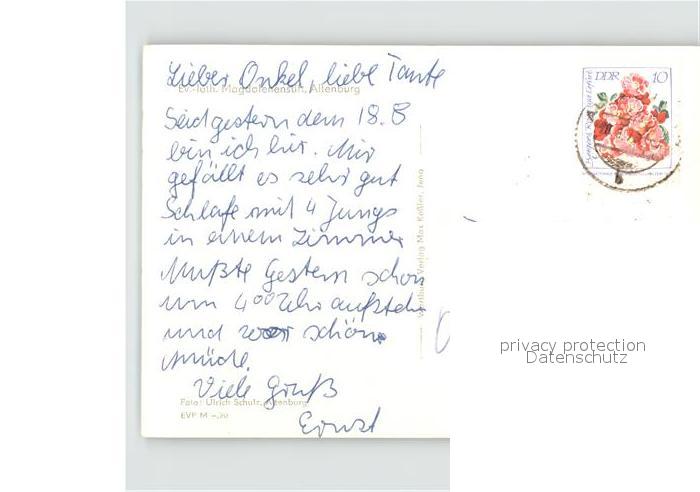 Lieber Onkel, liebe Tante
Ev.-luth. Magdalenenstift, Altenburg
Seid gestern dem 18. 8
bin ich hir. Mir
gefällt es sehr gut
Schlafe mit 4 Jungs
in einem Zimmer
Mußte Gestern schon
um 4⁰⁰ Uhr aufstehn
und war schön
müde.
Viele Gruß
Ernst
Foto: Ulrich Schulz, Altenburg
EVP M -,20
Verlag Max Keßler, Jena
DDR 10
privacy protection
Datenschutz